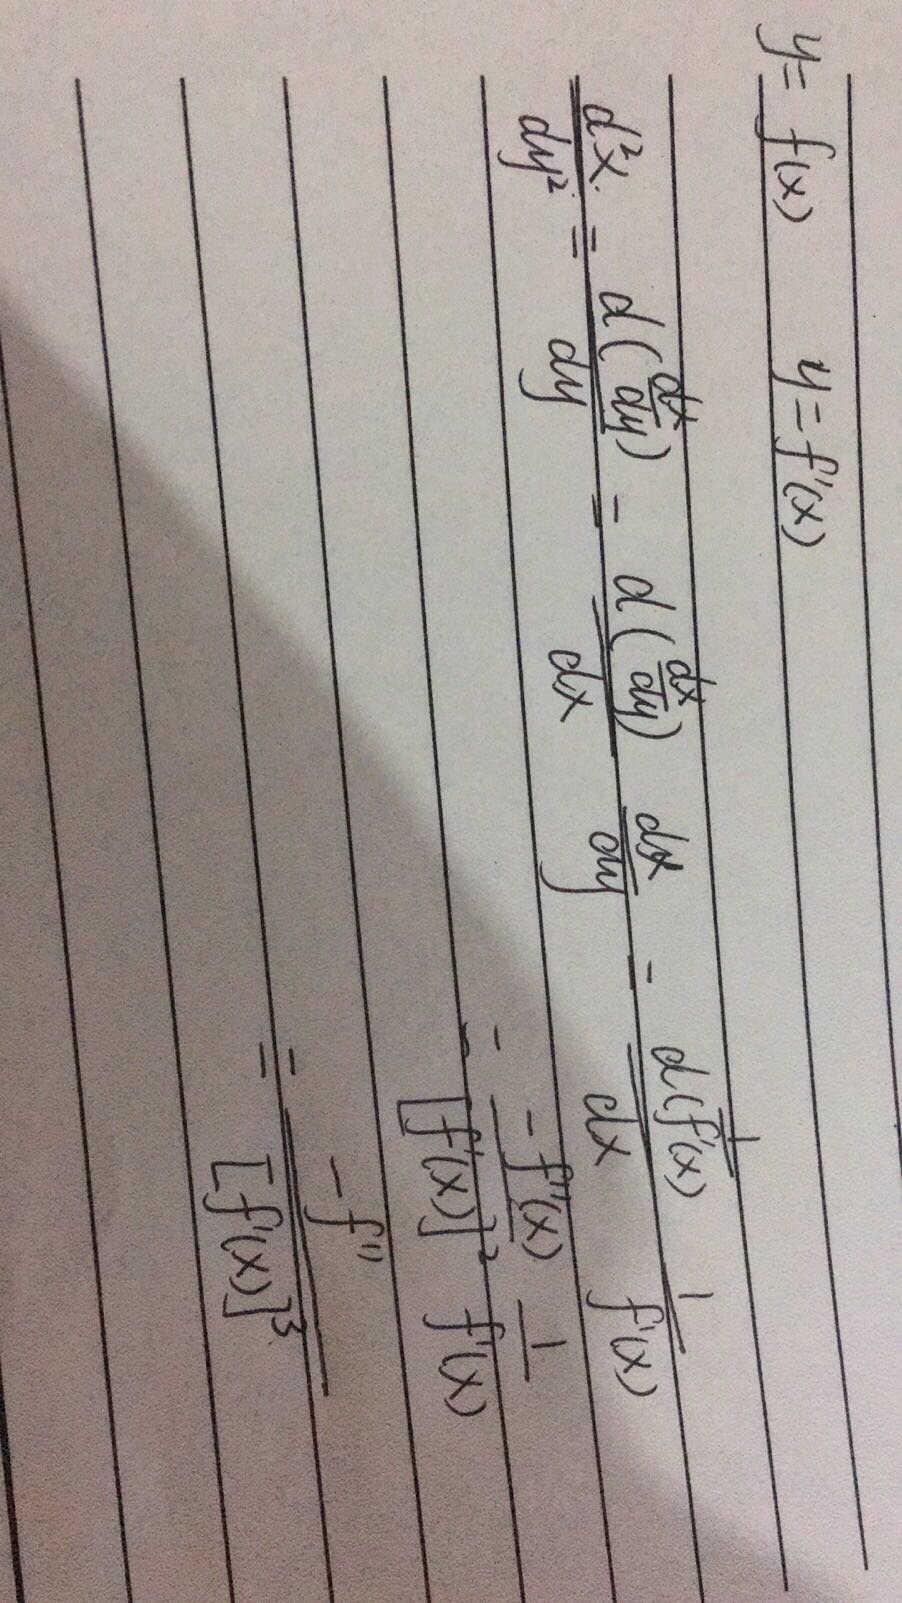 y = f(x) y = f'(x)
d²x/dy² = d(dx/dy)/dy = d(dx/dy)/dx dx/dy = d(1/f'(x))/dx 1/f'(x)
= -f''(x)/[f'(x)]² 1/f'(x)
= -f''/[f'(x)]³